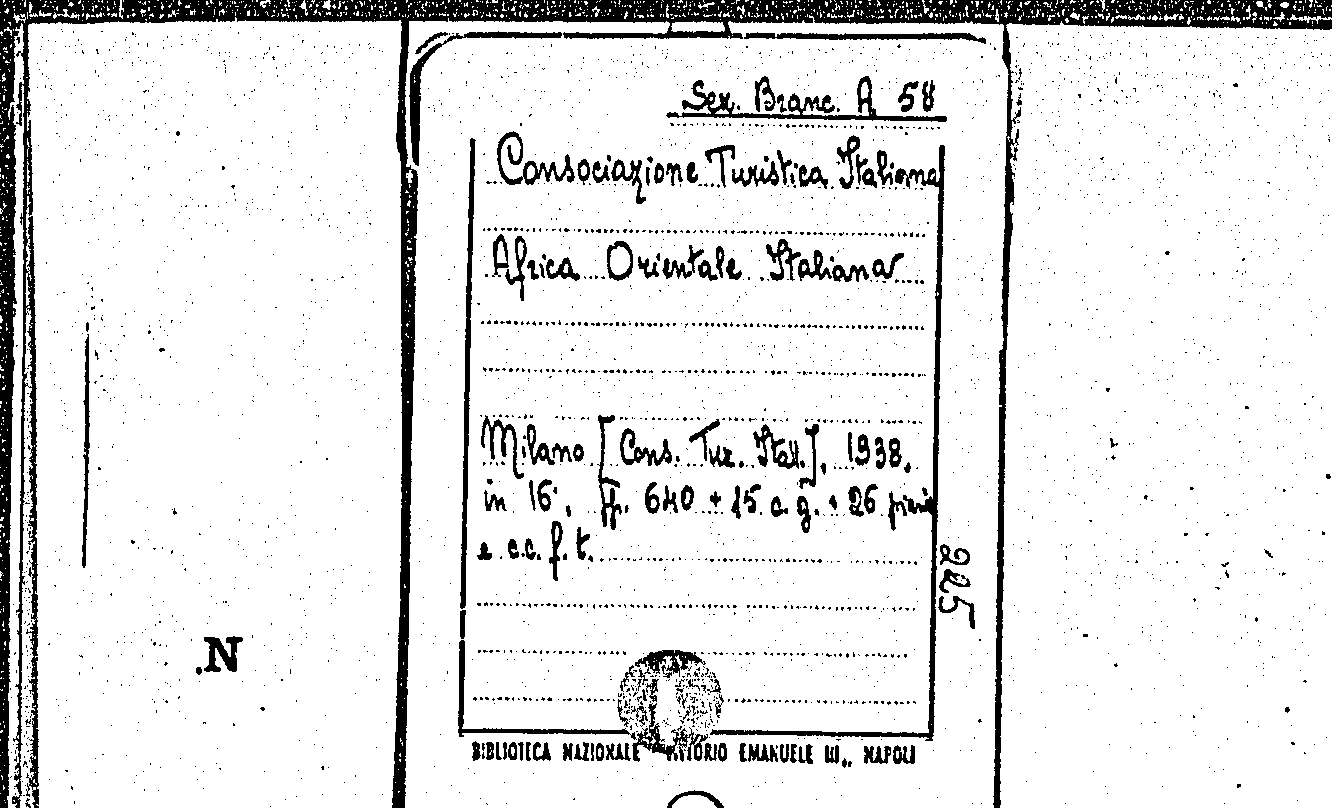 Sez. Branc. A 58
Consociazione Turistica Italiana
Africa Orientale Italiana
Milano [Cons. Tur. Ital.], 1938.
in 16°, pp. 640 + 15 c. g. + 26 piante
e c.c. f. t.
225
.N
BIBLIOTECA NAZIONALE VITTORIO EMANUELE III„ NAPOLI